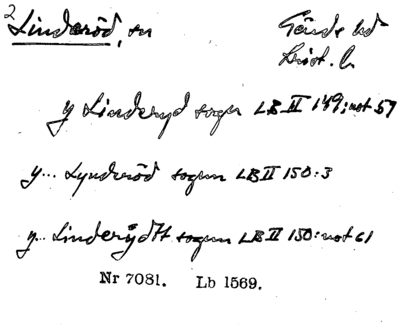 2 Linderöd, sn
Gärds hd
Krist. l.
y Linderyd sogn LB II 149: not 57
y... Lynderöd sogun LB II 150:3
y... Linderÿdtt sogun LB II 150: not 61
Nr 7081. Lb 1569.